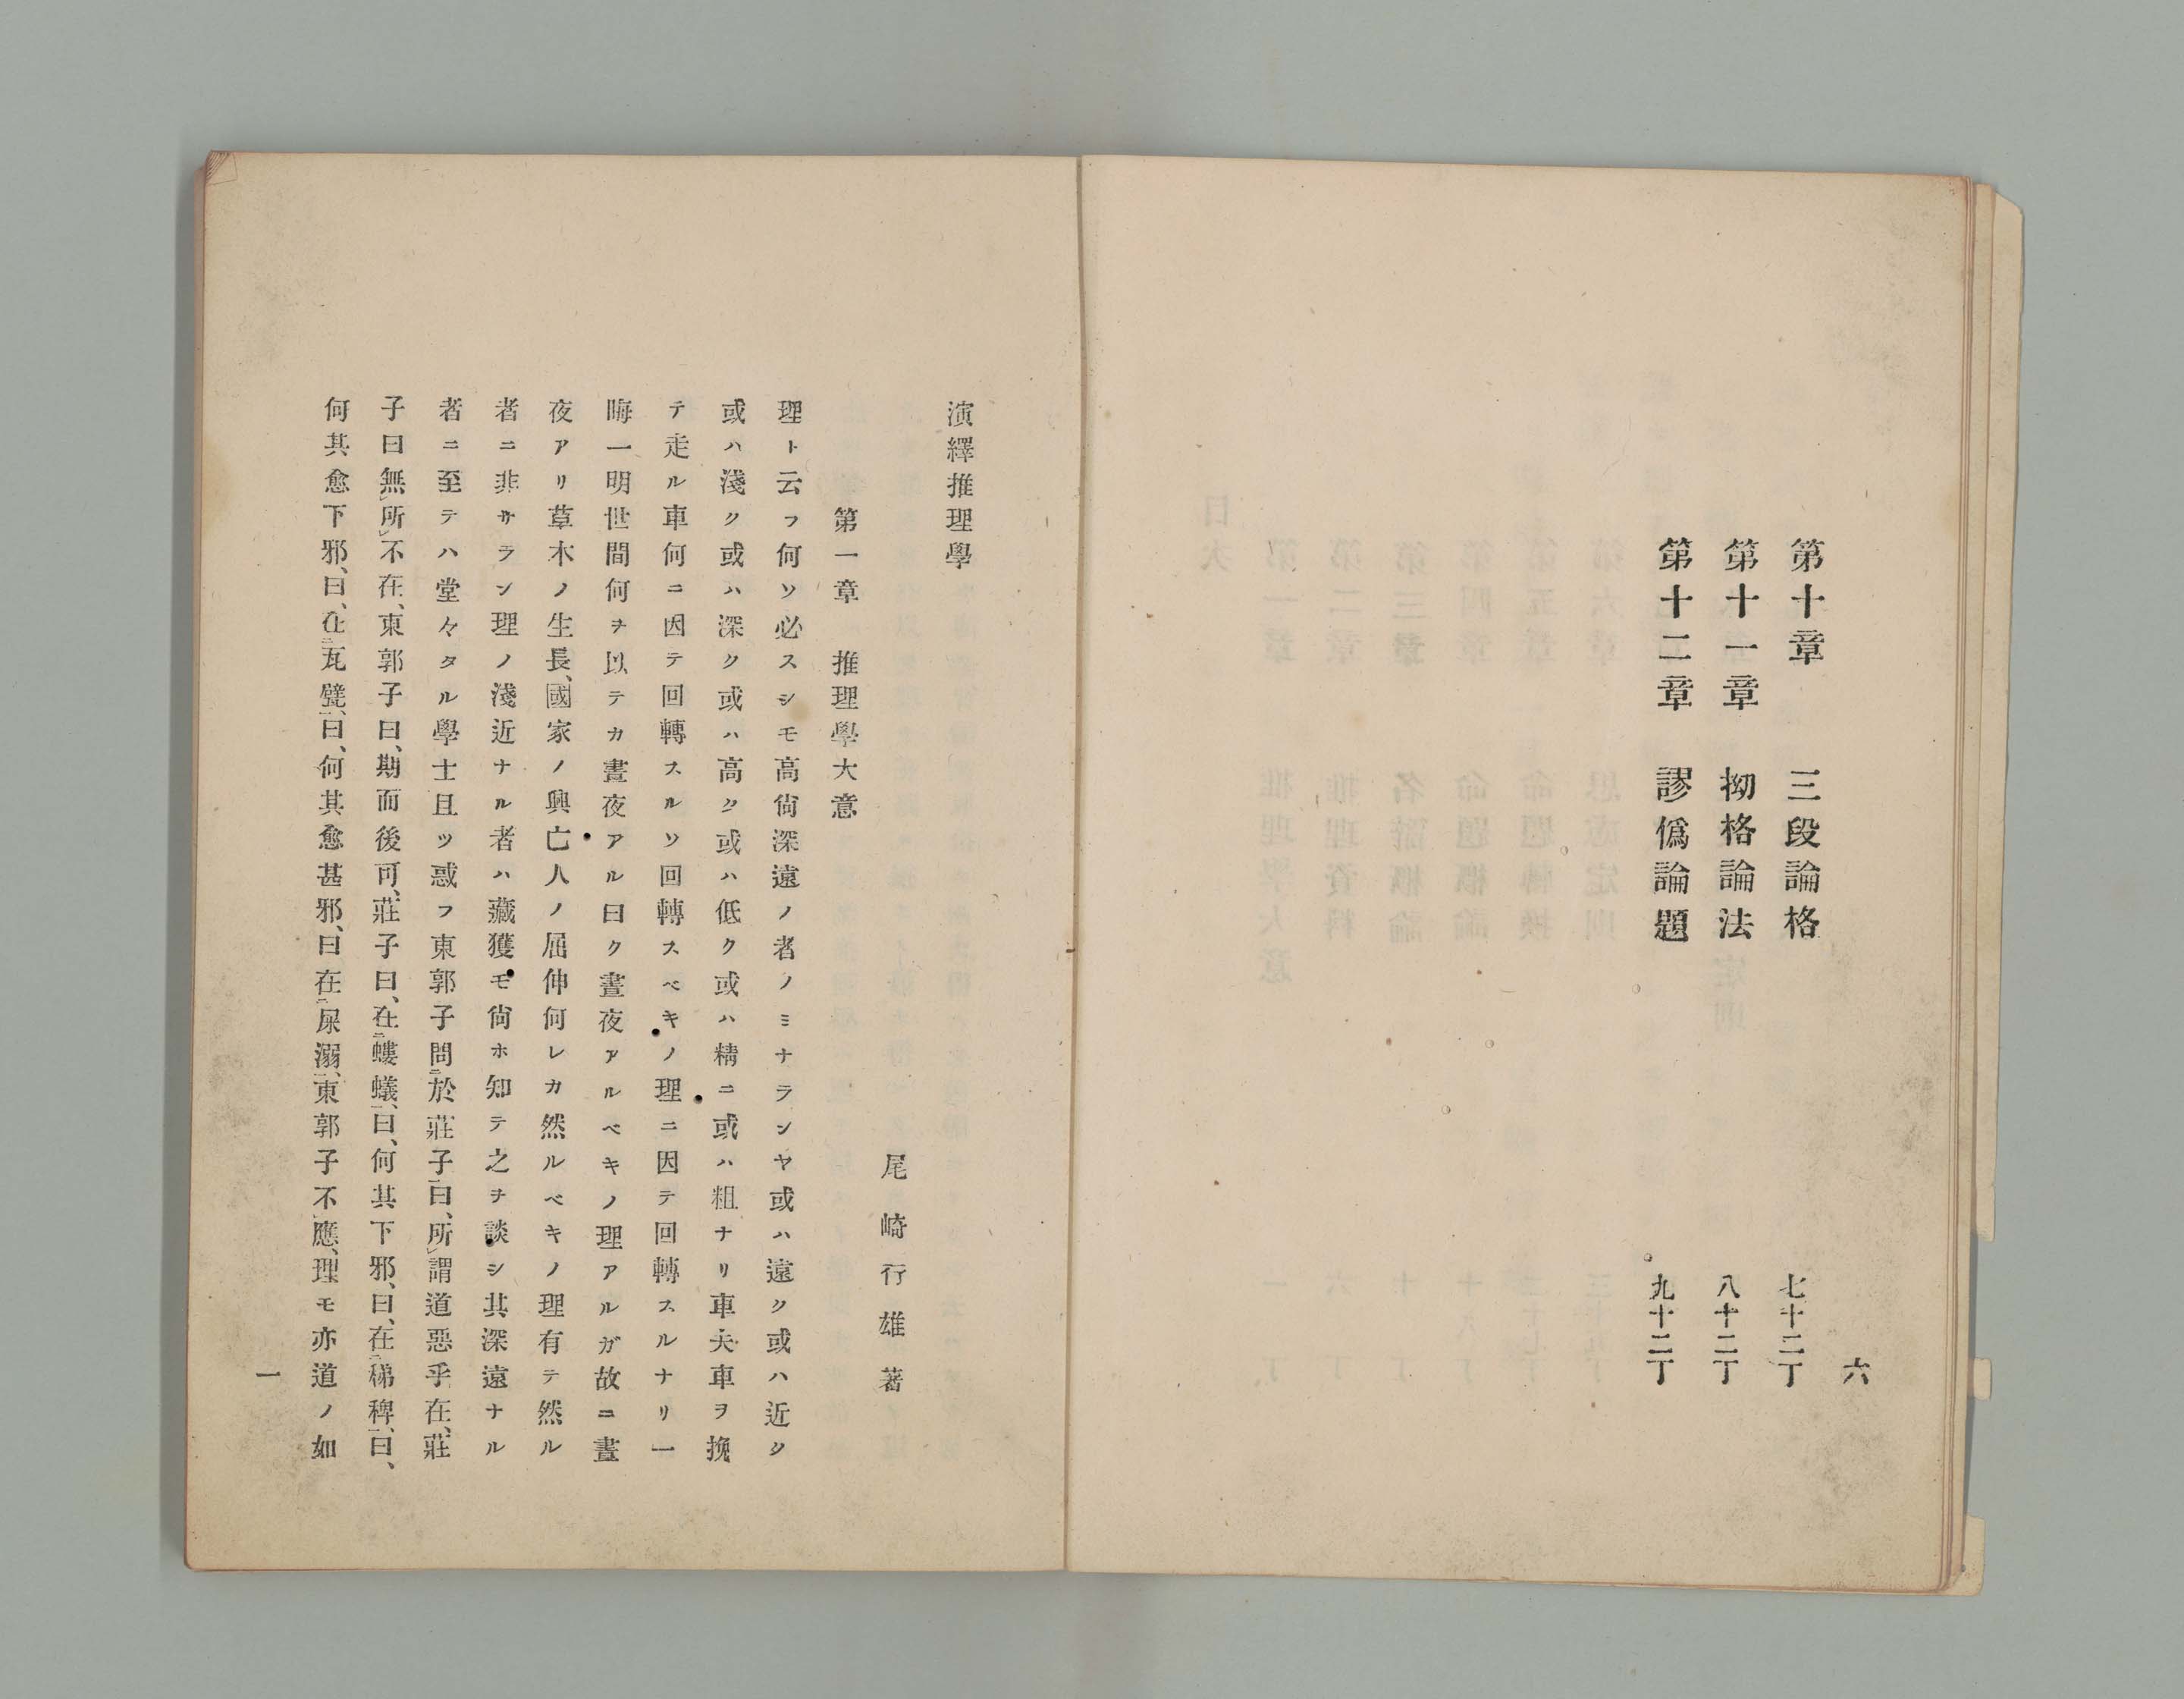 第十章　三段論格　七十二丁
第十一章　拗格論法　八十二丁
第十二章　謬僞論題　九十二丁
六
演繹推理學
尾崎行雄著
第一章　推理學大意
理ト云フ何ソ必スシモ高尙深遠ノ者ノミナランヤ或ハ遠ク或ハ近ク
或ハ淺ク或ハ深ク或ハ高ク或ハ低ク或ハ精ニ或ハ粗ナリ車夫車ヲ挽
テ走ル車何ニ因テ回轉スルソ回轉スベキノ理ニ因テ回轉スルナリ一
晦一明世間何ヲ以テカ晝夜アル曰ク晝夜アルベキノ理アルガ故ニ晝
夜アリ草木ノ生長、國家ノ興亡人ノ屈伸何レカ然ルベキノ理有テ然ル
者ニ非サラン理ノ淺近ナル者ハ藏獲モ尙ホ知テ之ヲ談シ其深遠ナル
者ニ至テハ堂々タル學士且ツ惑フ東郭子問ニ於莊子一曰、所レ謂道惡乎在、莊
子曰無レ所レ不在、東郭子曰、期而後可、莊子曰、在ニ螻蟻一、曰、何其下邪、曰、在ニ稊稗一、曰、
何其愈下邪、曰、在ニ瓦甓一、曰、何其愈甚邪、曰在ニ屎溺一、東郭子不應、理モ亦道ノ如
一